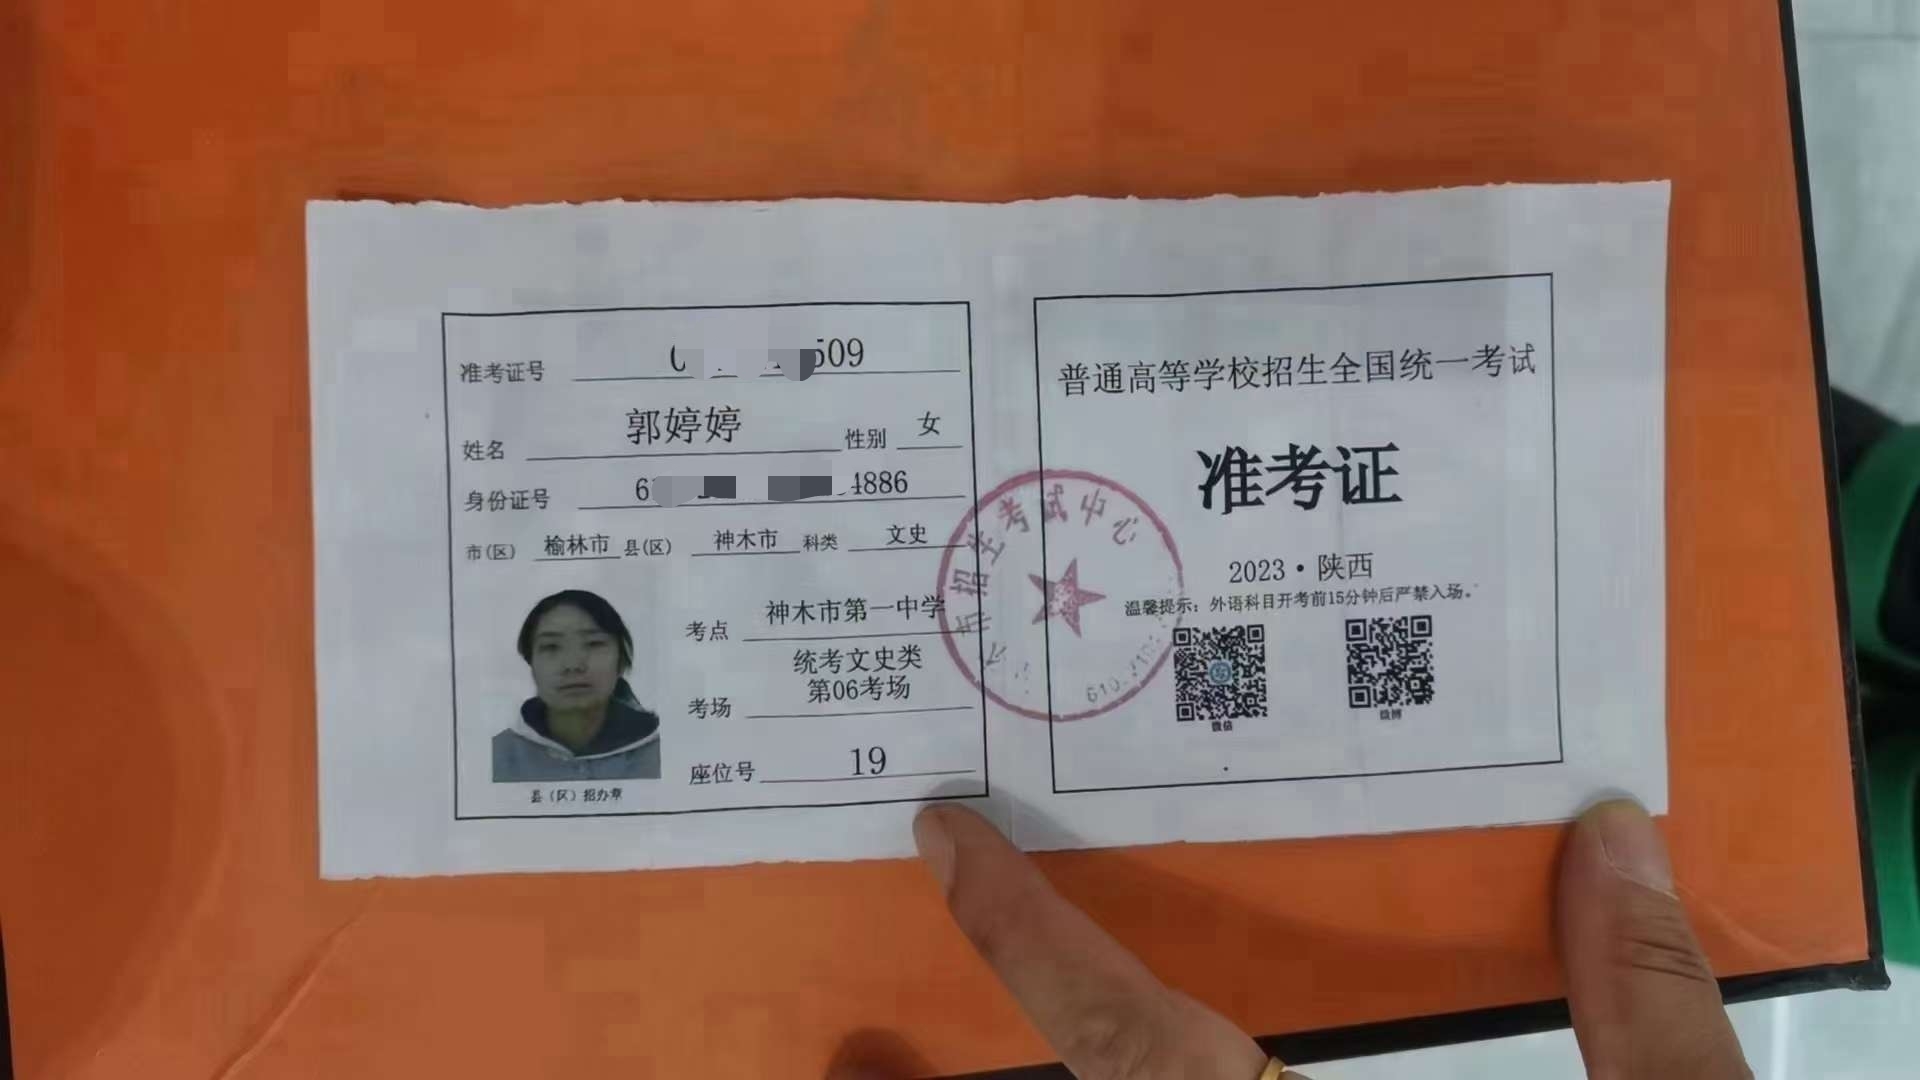 准考证号 509
姓名 郭婷婷 性别 女
身份证号 6 4886
市(区) 榆林市 县(区) 神木市 科类 文史
考点 神木市第一中学
考场 统考文史类
第06考场
座位号 19
县（区）招办章
市招生考试中心
普通高等学校招生全国统一考试
准考证
2023·陕西
温馨提示：外语科目开考前15分钟后严禁入场。
微信 微博